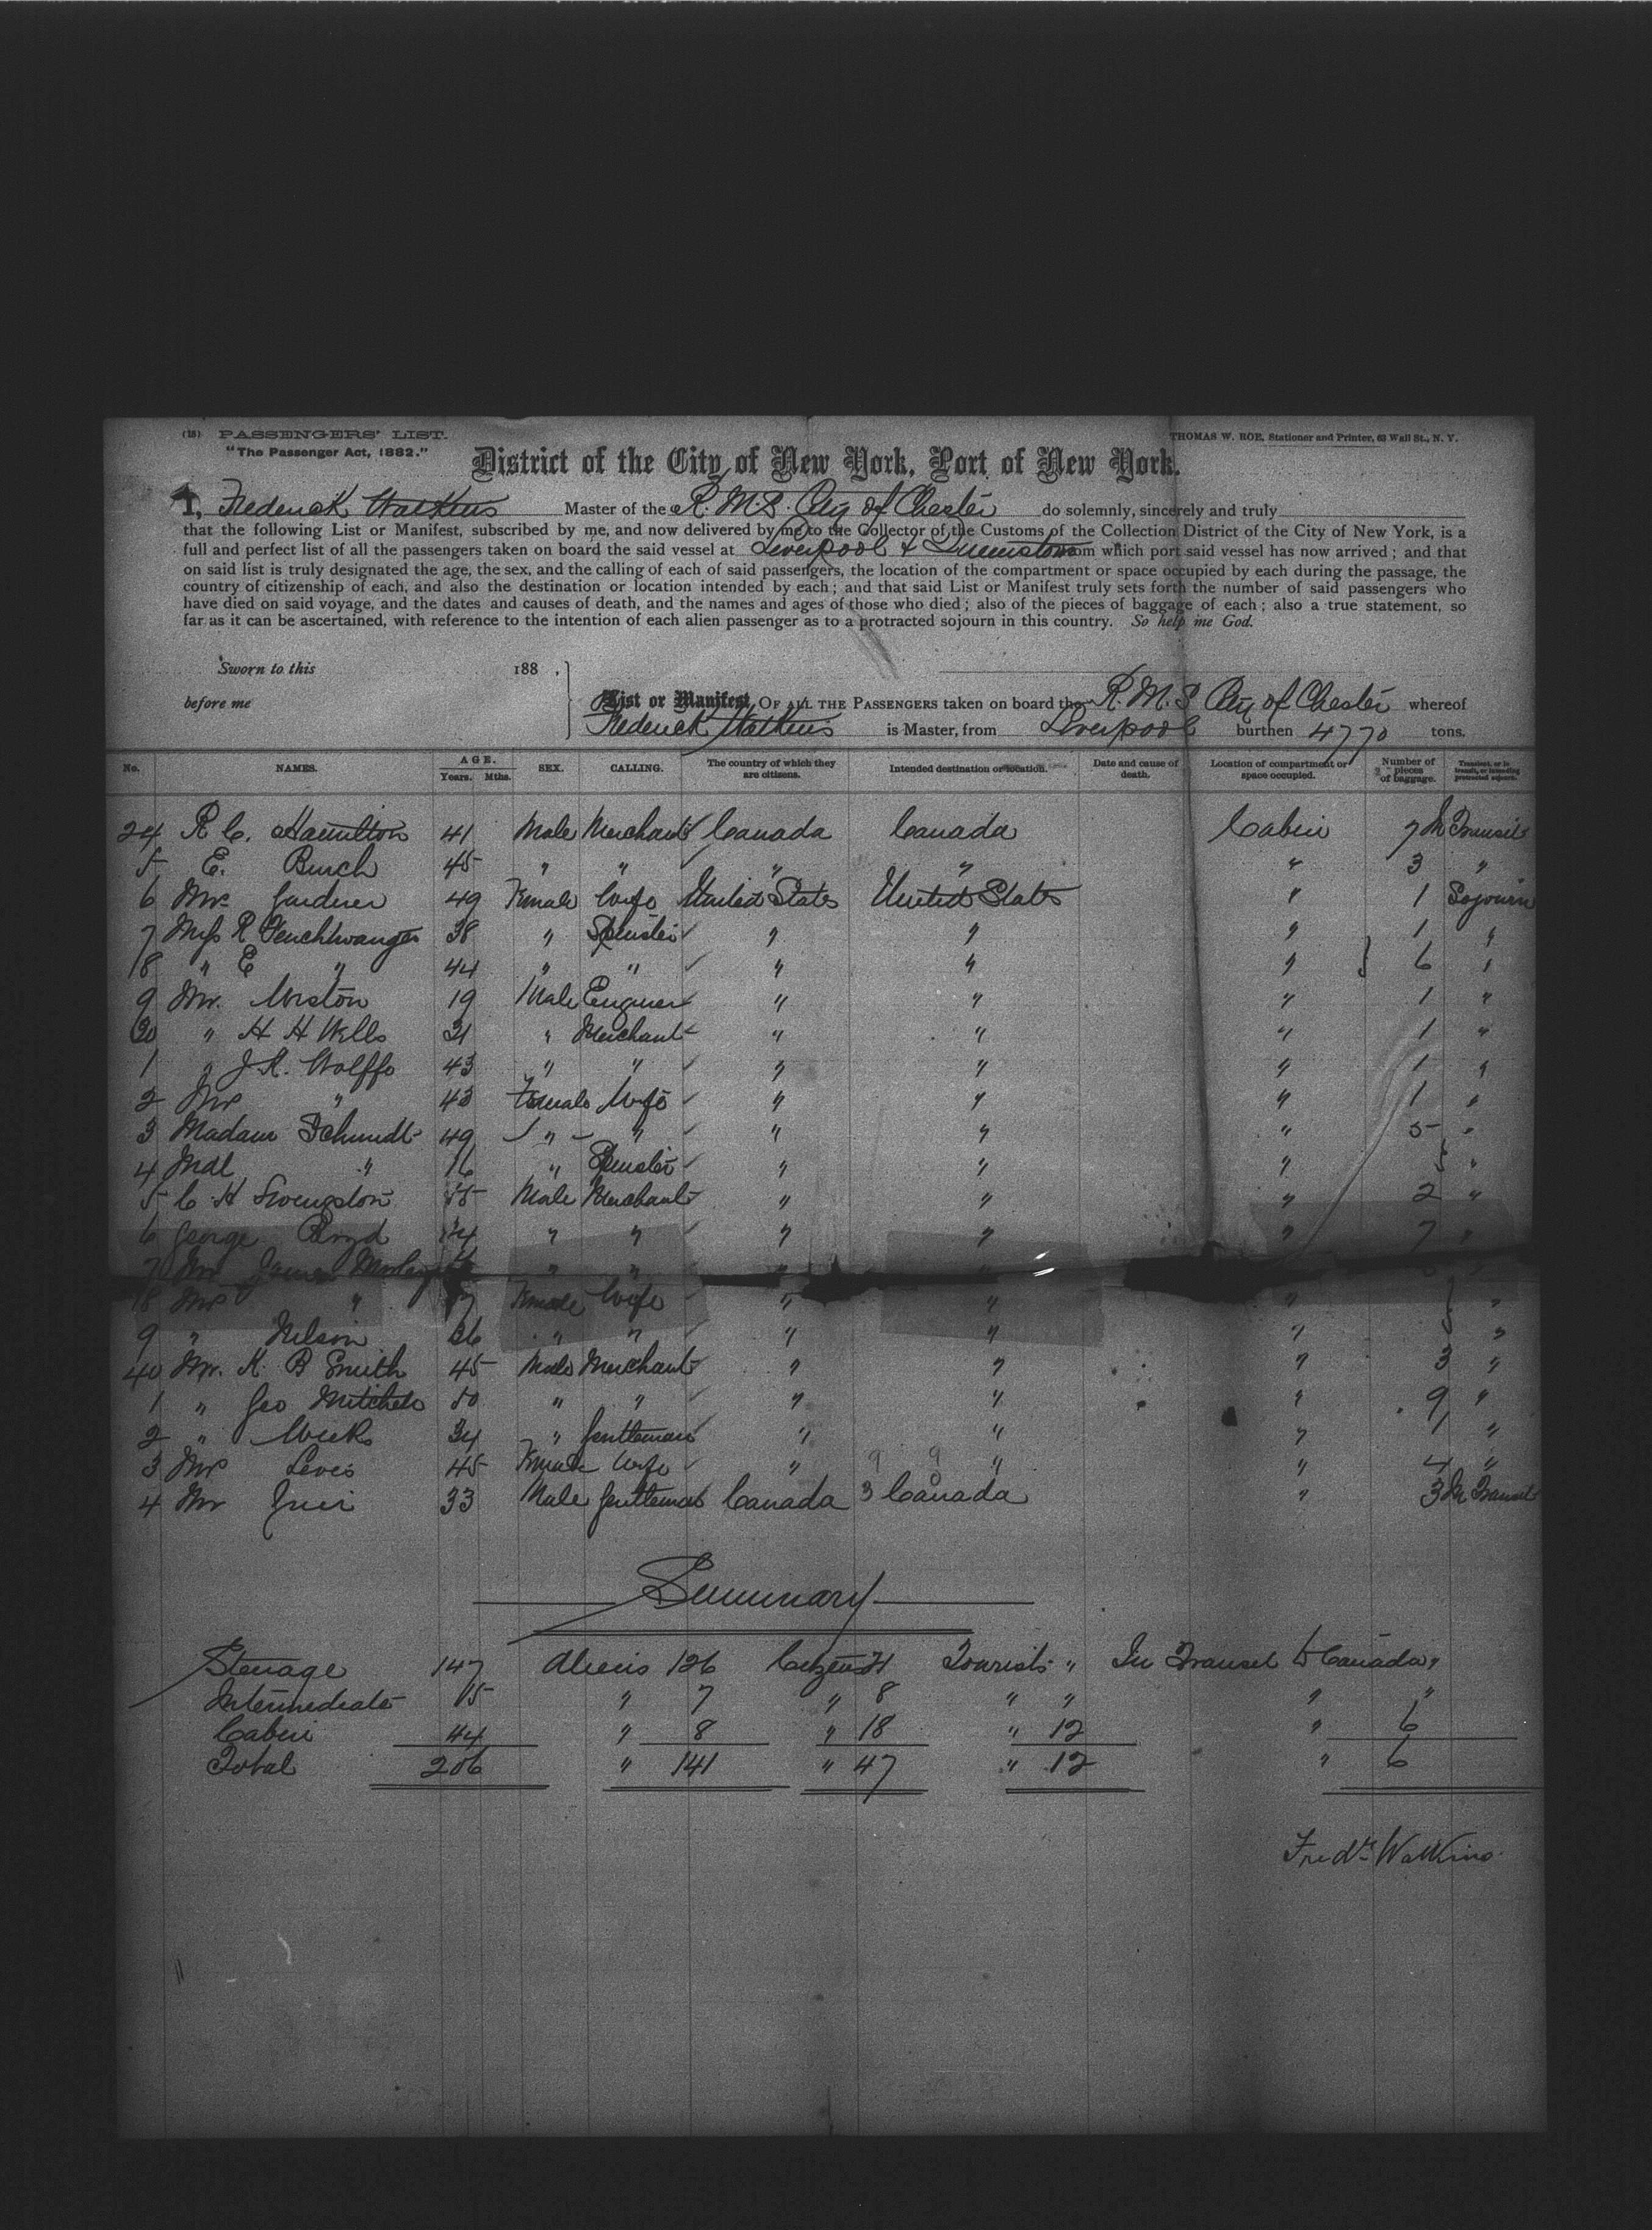 (18) PASSENGERS' LIST.
THOMAS W. ROE, Stationer and Printer, 63 Wall St., N. Y.
"The Passenger Act, 1882."
District of the City of New York, Port of New York.
I, Frederick Watkins Master of the R. M. S. City of Chester do solemnly, sincerely and truly
that the following List or Manifest, subscribed by me, and now delivered by me to the Collector of the Customs of the Collection District of the City of New York, is a
full and perfect list of all the passengers taken on board the said vessel at Liverpool & Queenstown from which port said vessel has now arrived; and that
on said list is truly designated the age, the sex, and the calling of each of said passengers, the location of the compartment or space occupied by each during the passage, the
country of citizenship of each, and also the destination or location intended by each; and that said List or Manifest truly sets forth the number of said passengers who
have died on said voyage, and the dates and causes of death, and the names and ages of those who died; also of the pieces of baggage of each; also a true statement, so
far as it can be ascertained, with reference to the intention of each alien passenger as to a protracted sojourn in this country. So help me God.
Sworn to this 188 .
before me
List or Manifest OF ALL THE PASSENGERS taken on board the R. M. S City of Chester whereof
Frederick Watkins is Master, from Liverpool burthen 4770 tons.
No. NAMES. AGE. Years. Mths. SEX. CALLING. The country of which they are citizens. Intended destination or location. Date and cause of death. Location of compartment or space occupied. Number of pieces of baggage. Transient, or in transit, or intending protracted sojourn.
24 R C. Hamilton 41 Male Merchant Canada Canada Cabin 7 In Transit
5 E. Burch 45 " " " " " 3 "
6 Mrs Gardner 49 Female Wife United States United States " 1 Sojourn
7 Miss R Feuchtwanger 38 " Spinster " " " 1 "
18 " E " 44 " " " " " 6 "
9 Mr. Weston 19 Male Engineer " " " 1 "
30 " H H Wells 31 " Merchant " " " 1 "
1 " J. R. Wolffe 43 " " " " " 1 "
2 Mrs " 43 Female Wife " " " 1 "
3 Madam Schmidt 49 " " " " " 5 "
4 Mdl " 16 " Spinster " " " "
5 C. H Livingston Male Merchant " " " 2 "
6 George Boyd " " " " " 7 "
7 Mr James " " " "
18 Mrs " Female Wife " " " "
9 " Nelson 36 " " " " " "
40 Mr. K. B Smith 45 Male Merchant " " " 3 "
1 " Geo Mitchell 50 " " " " " 9 "
2 " Weeks 34 " Gentleman " " " 1 "
3 Mrs Levis 45 Female Wife " " " 4 "
4 Mr Grier 33 Male Gentleman Canada 3 Canada " 3 In Transit
Summary
Steerage 147 Aliens 126 Citizens 21 Tourists " In Transit to Canada "
Intermediate 15 " 7 " 8 " " " "
Cabin 44 " 8 " 18 " 12 " 6
Total 206 " 141 " 47 " 12 " 6
Fredk Watkins